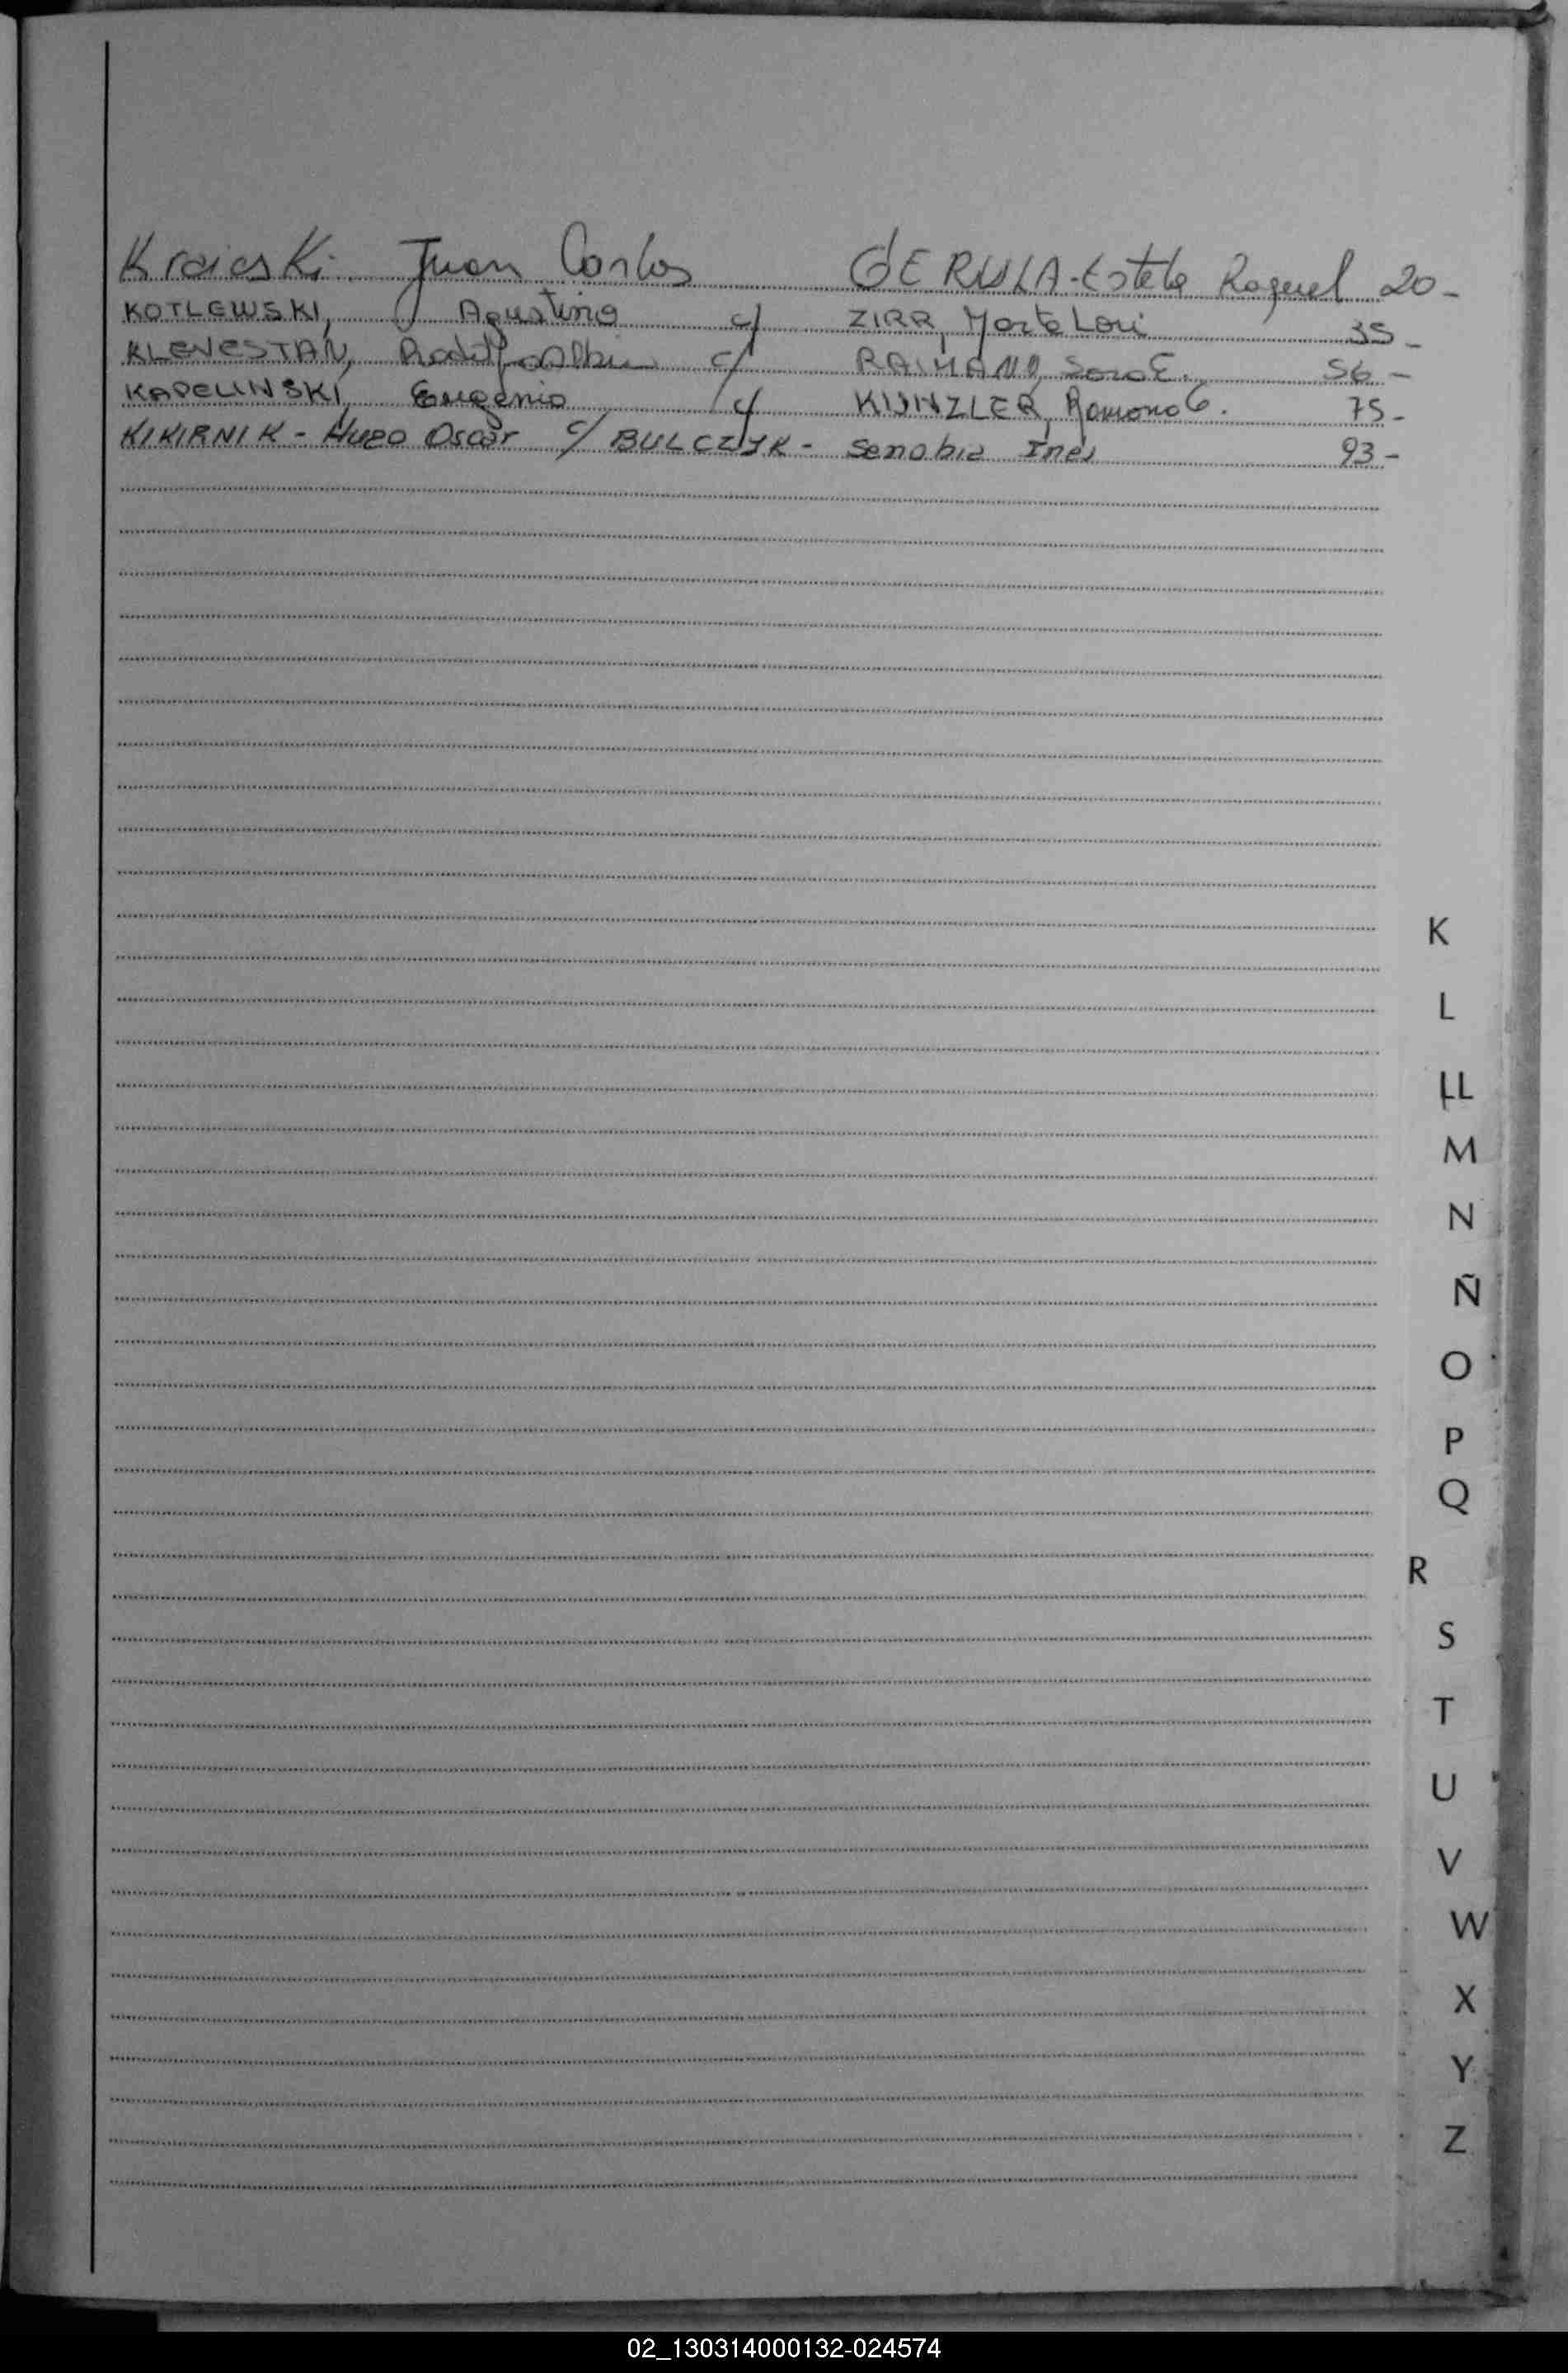 Kraieski Juan Carlos DERKSLA-Estela Raquel 20-
KOTLEWSKI, Agustino c/ ZIRR, Marta Loui 35-
KLENESTAN, Rodolfo Albin c/ RAIMANN, Sara E. 56-
KAPELINSKI, Eugenio c/ KUNZLER, Ramona G. 75-
KIKIRNIK - Hugo Oscar c/ BULCZYK - Senobia Ines 93-
K
L
LL
M
N
Ñ
O
P
Q
R
S
T
U
V
W
X
Y
Z
02_130314000132-024574